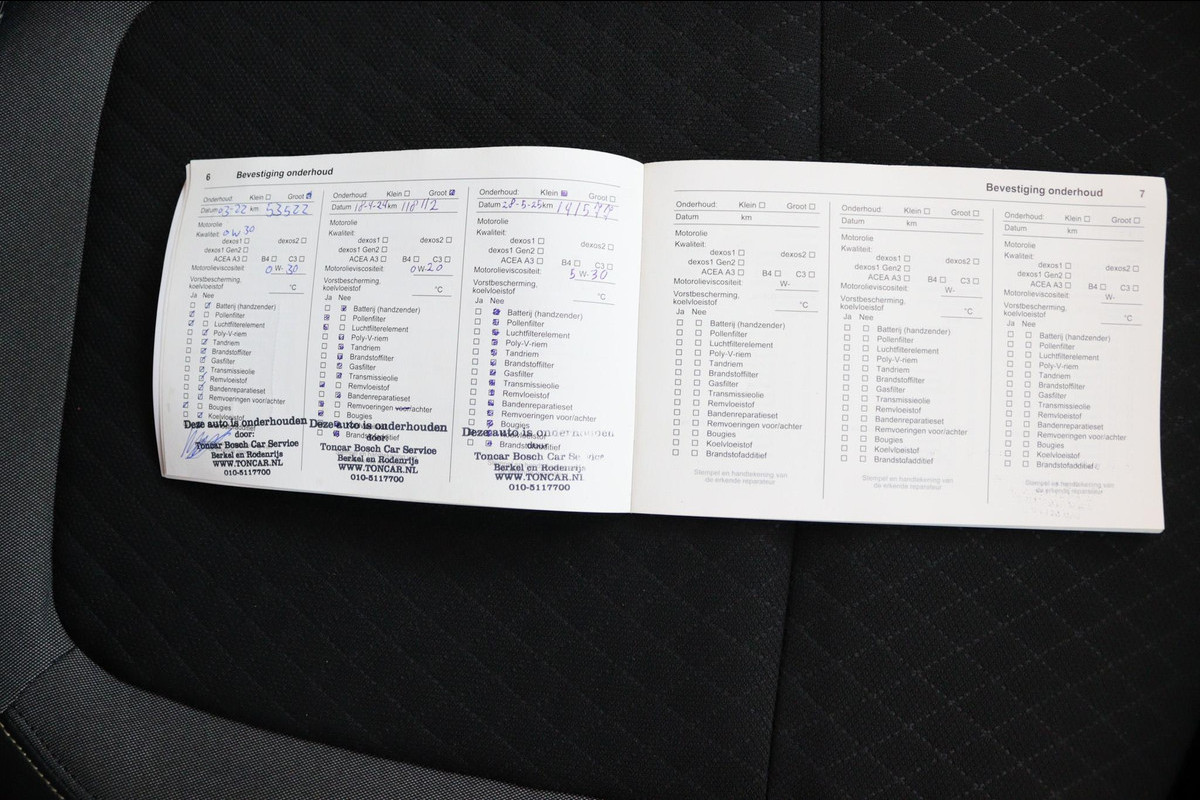 6 Bevestiging onderhoud
Onderhoud: Klein Groot
Datum 03-22 km 53522
Motorolie
Kwaliteit: 0W30
dexos1 dexos2
dexos1 Gen2
ACEA A3 B4 C3
Motorolieviscositeit: 0 W- 30
Vorstbescherming, koelvloeistof °C
Ja Nee
Batterij (handzender)
Pollenfilter
Luchtfilterelement
Poly-V-riem
Tandriem
Brandstoffilter
Gasfilter
Transmissieolie
Remvloeistof
Bandenreparatieset
Remvoeringen voor/achter
Bougies
Koelvloeistof
Deze auto is onderhouden
door:
Toncar Bosch Car Service
Berkel en Rodenrijs
WWW.TONCAR.NL
010-5117700
Onderhoud: Klein Groot
Datum 18-4-24 km
Motorolie
Kwaliteit:
dexos1 dexos2
dexos1 Gen2
ACEA A3 B4 C3
Motorolieviscositeit: 0 W- 20
Vorstbescherming,
koelvloeistof °C
Ja Nee
Batterij (handzender)
Pollenfilter
Luchtfilterelement
Poly-V-riem
Tandriem
Brandstoffilter
Gasfilter
Transmissieolie
Remvloeistof
Bandenreparatieset
Remvoeringen voor/achter
Bougies
Deze auto is onderhouden
door:
Toncar Bosch Car Service
Berkel en Rodenrijs
WWW.TONCAR.NL
010-5117700
Onderhoud: Klein Groot
Datum 28-5-25 km
Motorolie
Kwaliteit:
dexos1 dexos2
dexos1 Gen2
ACEA A3 B4 C3
Motorolieviscositeit: 5 W- 30
Vorstbescherming,
koelvloeistof °C
Ja Nee
Batterij (handzender)
Pollenfilter
Luchtfilterelement
Poly-V-riem
Tandriem
Brandstoffilter
Gasfilter
Transmissieolie
Remvloeistof
Bandenreparatieset
Remvoeringen voor/achter
Bougies
Deze auto is onderhouden
door:
Toncar Bosch Car Service
Berkel en Rodenrijs
WWW.TONCAR.NL
010-5117700
Bevestiging onderhoud 7
Onderhoud: Klein Groot
Datum km
Motorolie
Kwaliteit:
dexos1 dexos2
dexos1 Gen2
ACEA A3 B4 C3
Motorolieviscositeit: W-
Vorstbescherming,
koelvloeistof °C
Ja Nee
Batterij (handzender)
Pollenfilter
Luchtfilterelement
Poly-V-riem
Tandriem
Brandstoffilter
Gasfilter
Transmissieolie
Remvloeistof
Bandenreparatieset
Remvoeringen voor/achter
Bougies
Koelvloeistof
Brandstofadditief
Stempel en handtekening van
de erkende reparateur
Onderhoud: Klein Groot
Datum km
Motorolie
Kwaliteit:
dexos1 dexos2
dexos1 Gen2
ACEA A3 B4 C3
Motorolieviscositeit: W-
Vorstbescherming,
koelvloeistof °C
Ja Nee
Batterij (handzender)
Pollenfilter
Luchtfilterelement
Poly-V-riem
Tandriem
Brandstoffilter
Gasfilter
Transmissieolie
Remvloeistof
Bandenreparatieset
Remvoeringen voor/achter
Bougies
Koelvloeistof
Brandstofadditief
Stempel en handtekening van
de erkende reparateur
Onderhoud: Klein Groot
Datum km
Motorolie
Kwaliteit:
dexos1 dexos2
dexos1 Gen2
ACEA A3 B4 C3
Motorolieviscositeit: W-
Vorstbescherming,
koelvloeistof °C
Ja Nee
Batterij (handzender)
Pollenfilter
Luchtfilterelement
Poly-V-riem
Tandriem
Brandstoffilter
Gasfilter
Transmissieolie
Remvloeistof
Bandenreparatieset
Remvoeringen voor/achter
Bougies
Koelvloeistof
Brandstofadditief
Stempel en handtekening van
de erkende reparateur